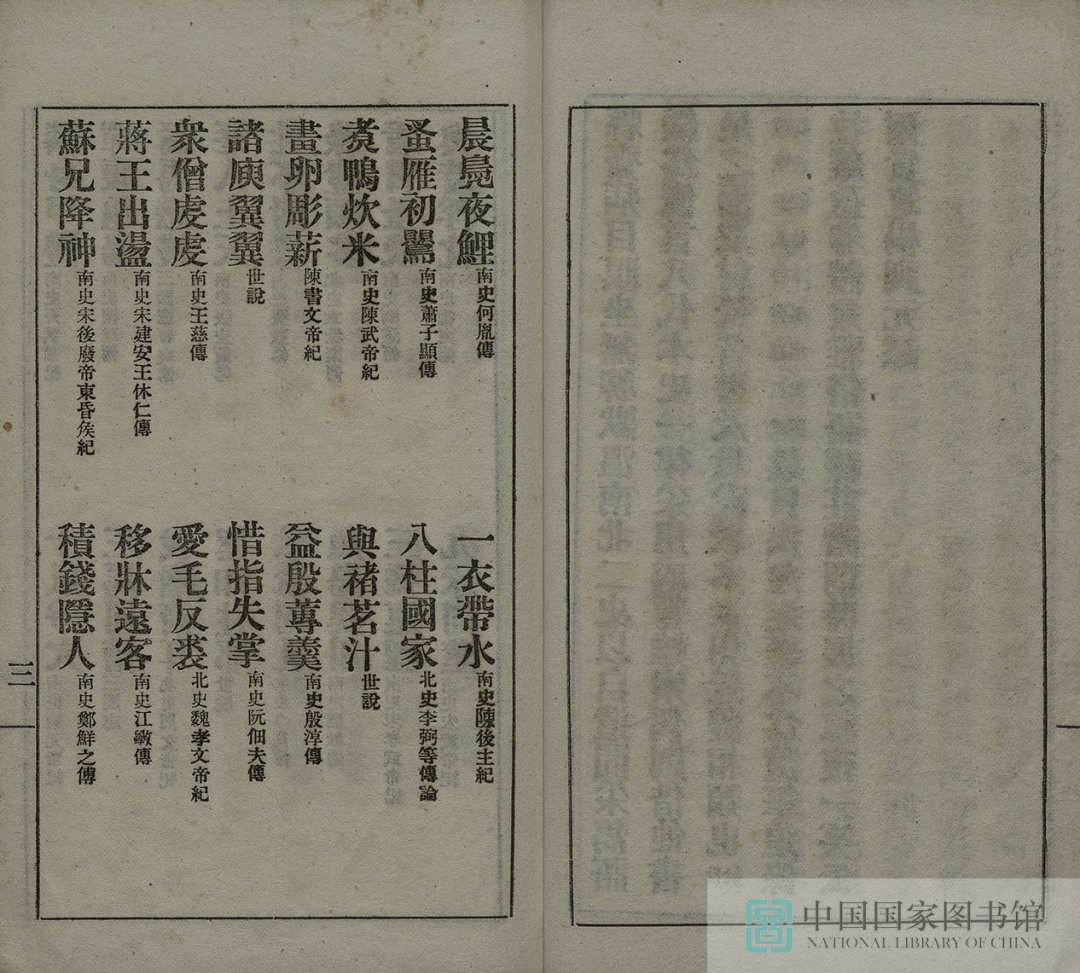 晨鳧夜鯉南史何胤傳
一衣帶水南史陳後主紀
蚤雁初鸎南史蕭子顯傳
八柱國家北史李弼等傳論
煑鴨炊米南史陳武帝紀
與褚茗汁世說
畫卵彫薪陳書文帝紀
益殷蓴羹南史殷淳傳
諸庾翼翼世說
惜指失掌南史阮佃夫傳
衆僧虔虔南史王慈傳
愛毛反裘北史魏孝文帝紀
蔣王出盪南史宋建安王休仁傳
移牀遠客南史江斆傳
蘇兄降神南史宋後廢帝東昏矦紀
積錢隱人南史鄭鮮之傳
三
中国国家图书馆
NATIONAL LIBRARY OF CHINA